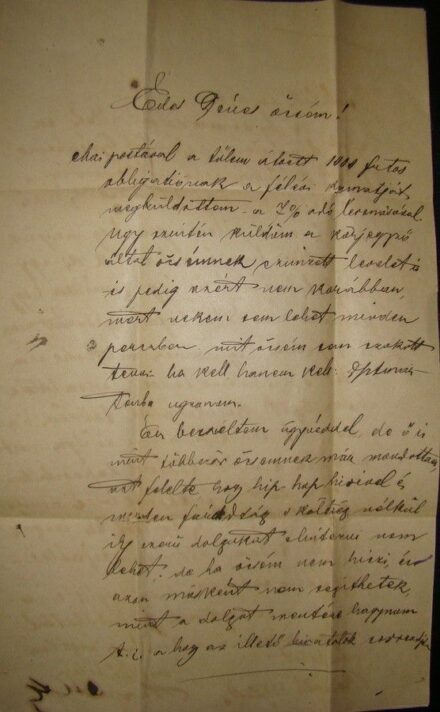 Édes Dénes öcsém!
Mai postával a tőlem átvett 1000 frtos
obligatiónak a félévi kamatját
megküldöttem a 7% adó levonásával
úgy szintén küldöm a közjegyző
által öcsémnek czímzett levelet is
és pedig azért nem korábban,
mert nekem nem lehet minden
perczben mit öcsém szokott
tenni ha kell hanem kell
ugranom.
Én beszéltem ügyvéddel, de ő is
mint többször öcsémnek már mondottam
azt felelte, hogy hip hap hívével és
minden fáradság s költség nélkül
ily dolgokat elintézni nem
lehet. de ha öcsém nem hiszi, én
azon másként nem segíthetek,
mint a dolgot mentére hagynom
t. i. a hogy az illető hivatalok